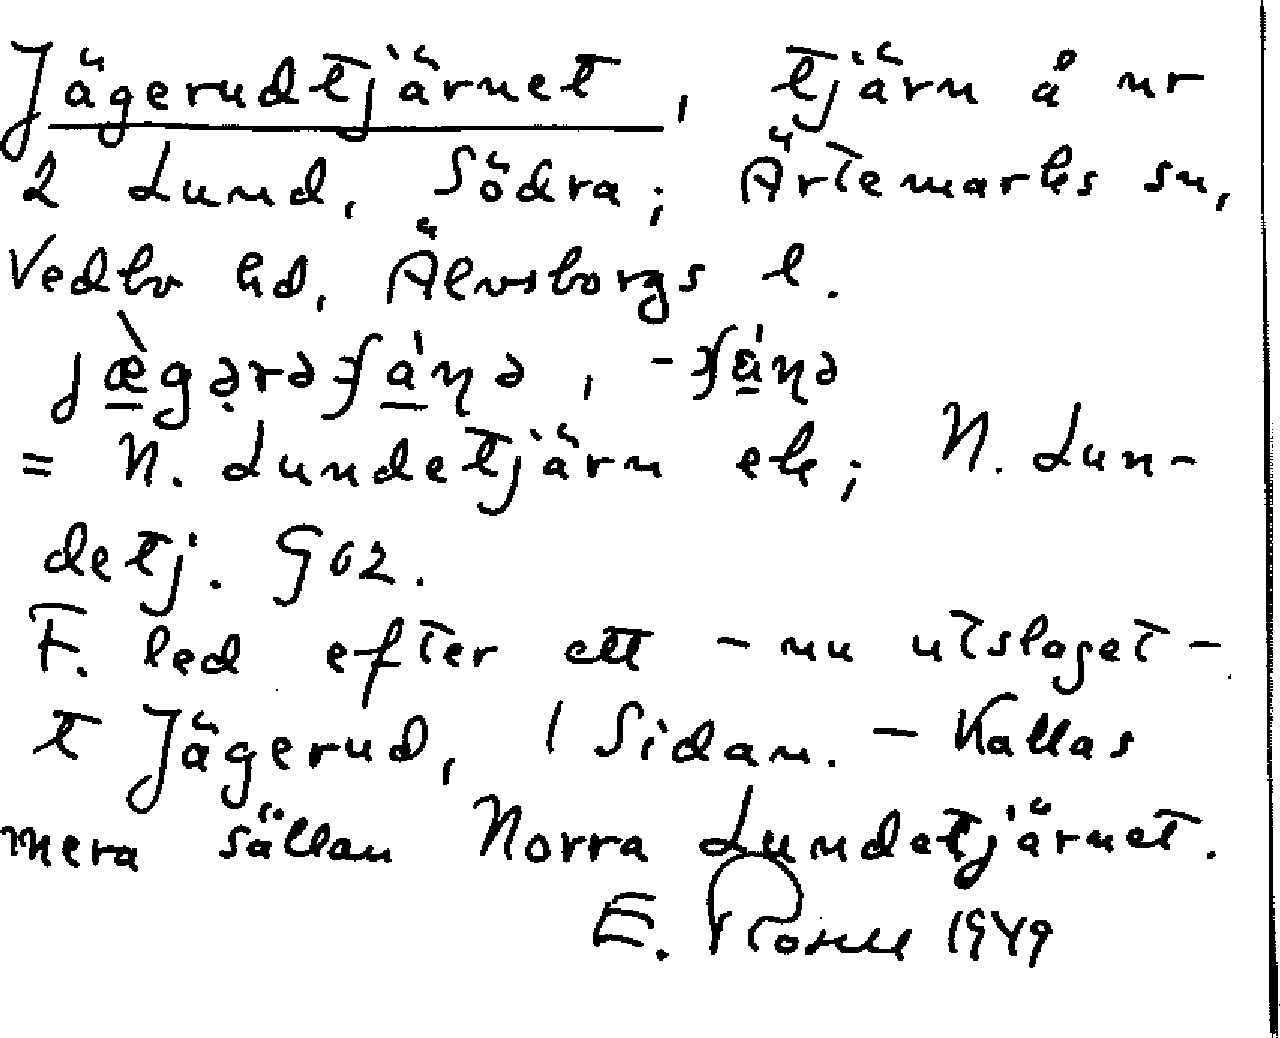 Jägerudtjärnet, tjärn å nr
2 Lund, Södra; Ärtemarks sn,
Vedbo hd, Älvsborgs l.
= N. Lundetjärn ek; N. Lun-
detj. G02.
F. led efter ett – nu utslaget –
t Jägerud, 1 Sidan. – Kallas
mera sällan Norra Lundetjärnet.
E. Rosell 1949